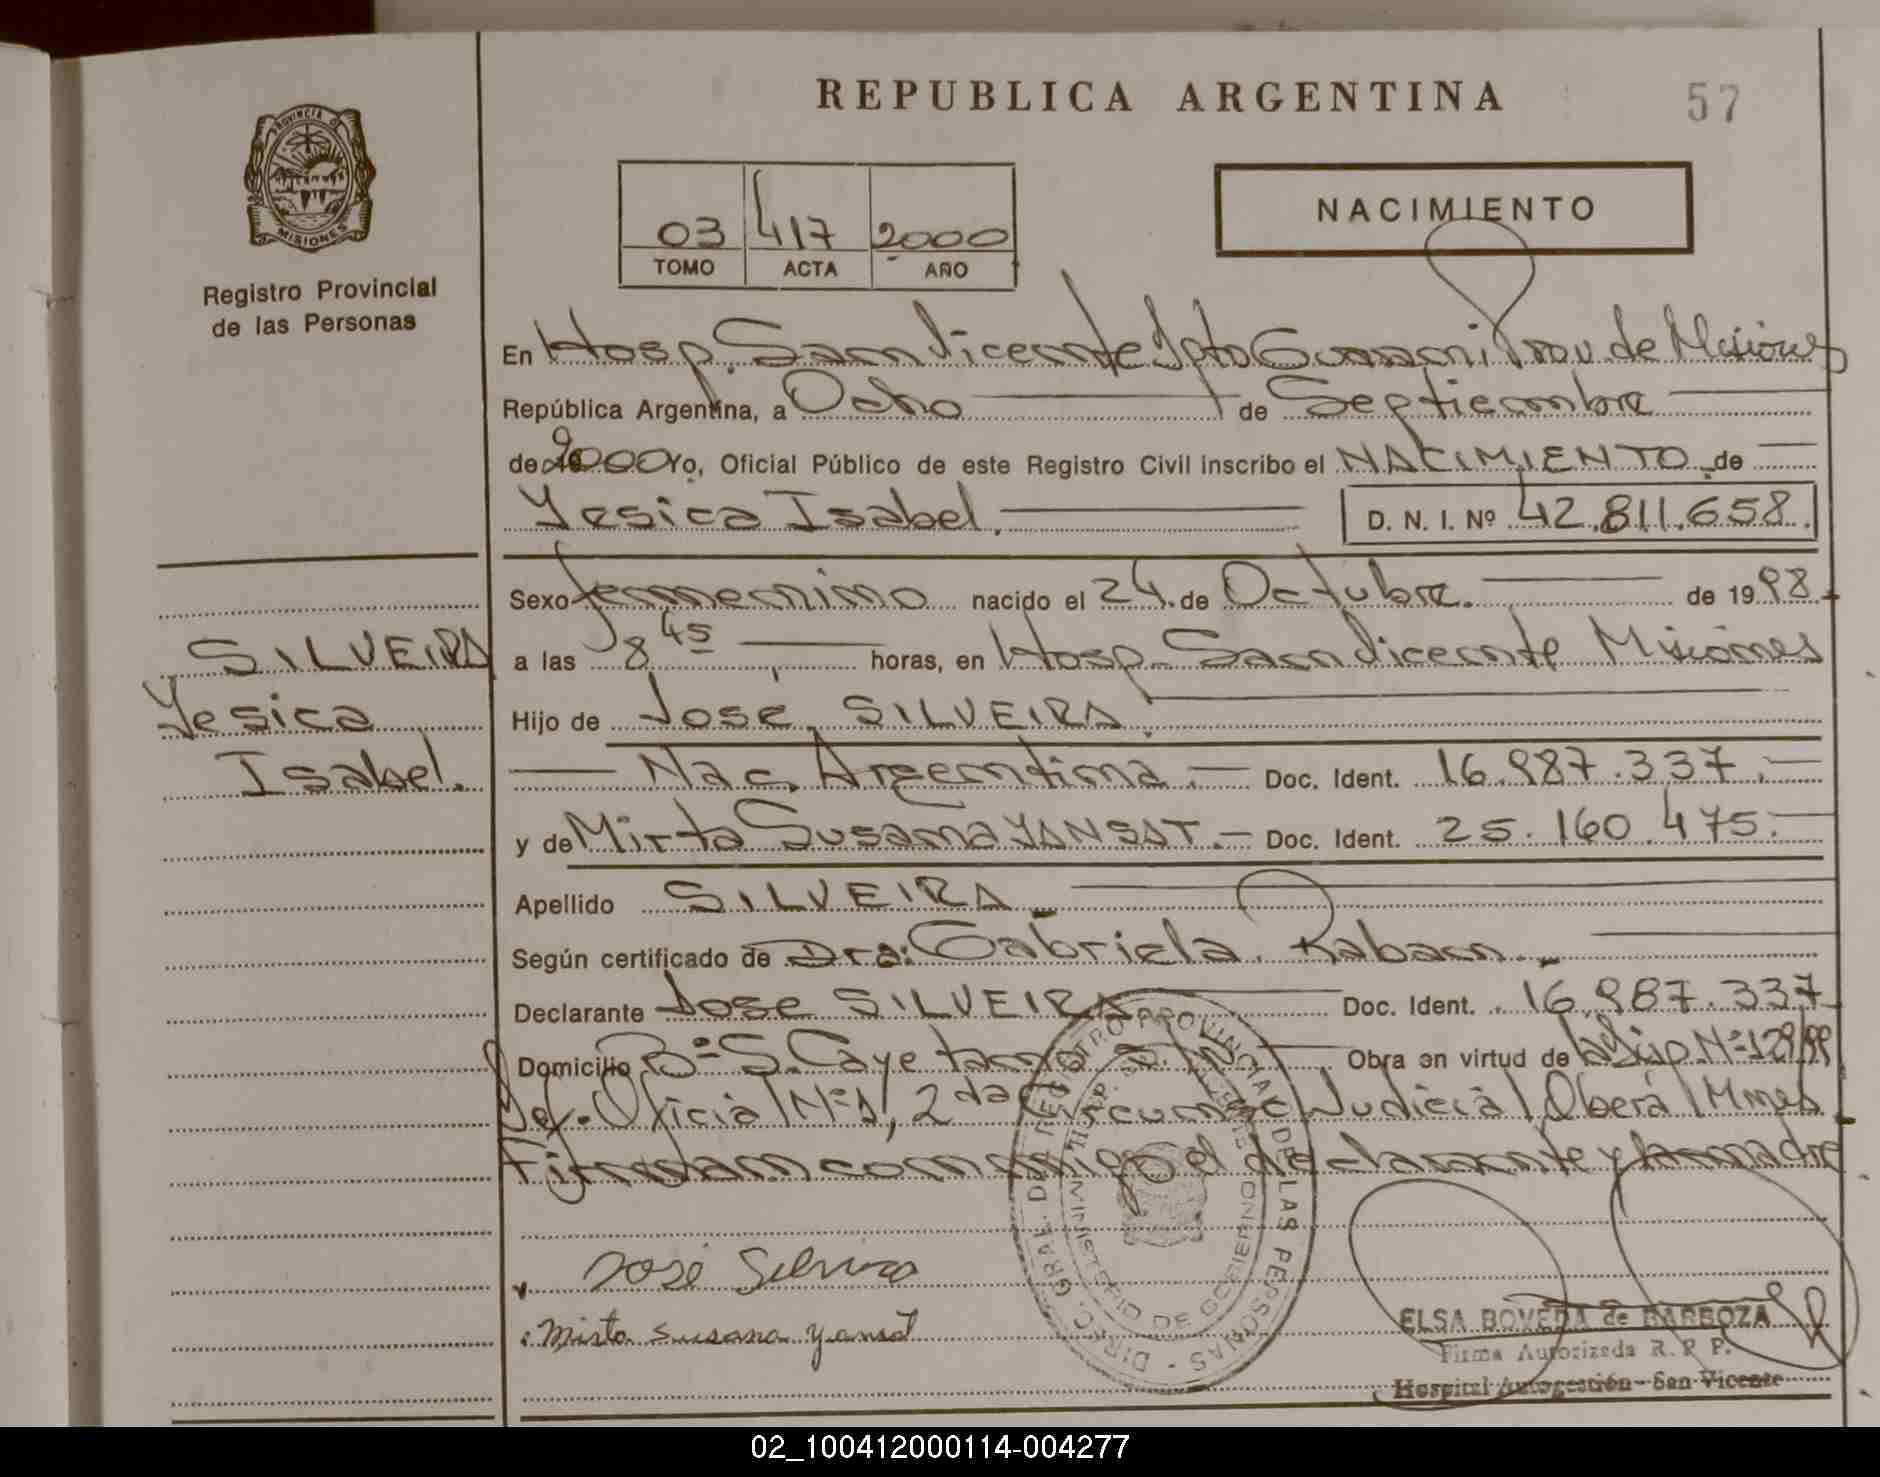 REPUBLICA ARGENTINA
57
PROVINCIA DE
MISIONES
Registro Provincial
de las Personas
03 417 2000
TOMO ACTA AÑO
NACIMIENTO
En Hosp. San Vicente Dpto Guarani, Prov. de Misiones
República Argentina, a Ocho de Septiembre
de 2000 Yo, Oficial Público de este Registro Civil inscribo el NACIMIENTO de
Yesica Isabel. D. N. I. Nº 42.811.658.
Sexo femenino nacido el 24 de Octubre. de 1998
a las 8 45 horas, en Hosp. San Vicente Misiones
Hijo de José SILVEIRA
Nac. Argentina. Doc. Ident. 16.987.337.
y de Mirta Susana YANSAT. Doc. Ident. 25.160.475.
Apellido SILVEIRA
Según certificado de Dra: Gabriela Raban
Declarante Jose SILVEIRA Doc. Ident. 16.987.337
Domicilio Bº S. Cayetano S. V. Obra en virtud de Nº 129/99
Def. Oficial Nº 1, 2da Circunsc Judicial Oberá Mnes
Firman conmigo el declarante y la madre
SILVEIRA
Yesica
Isabel.
José Silveira
Mirta Susana Yansat
DIRECC. GRAL. DEL REGISTRO PROVINCIAL DE LAS PERSONAS
MINISTERIO DE GOBIERNO
ELSA BOVEDA de BARBOZA
Firma Autorizada R. P. P.
Hospital Autogestión - San Vicente
02_100412000114-004277